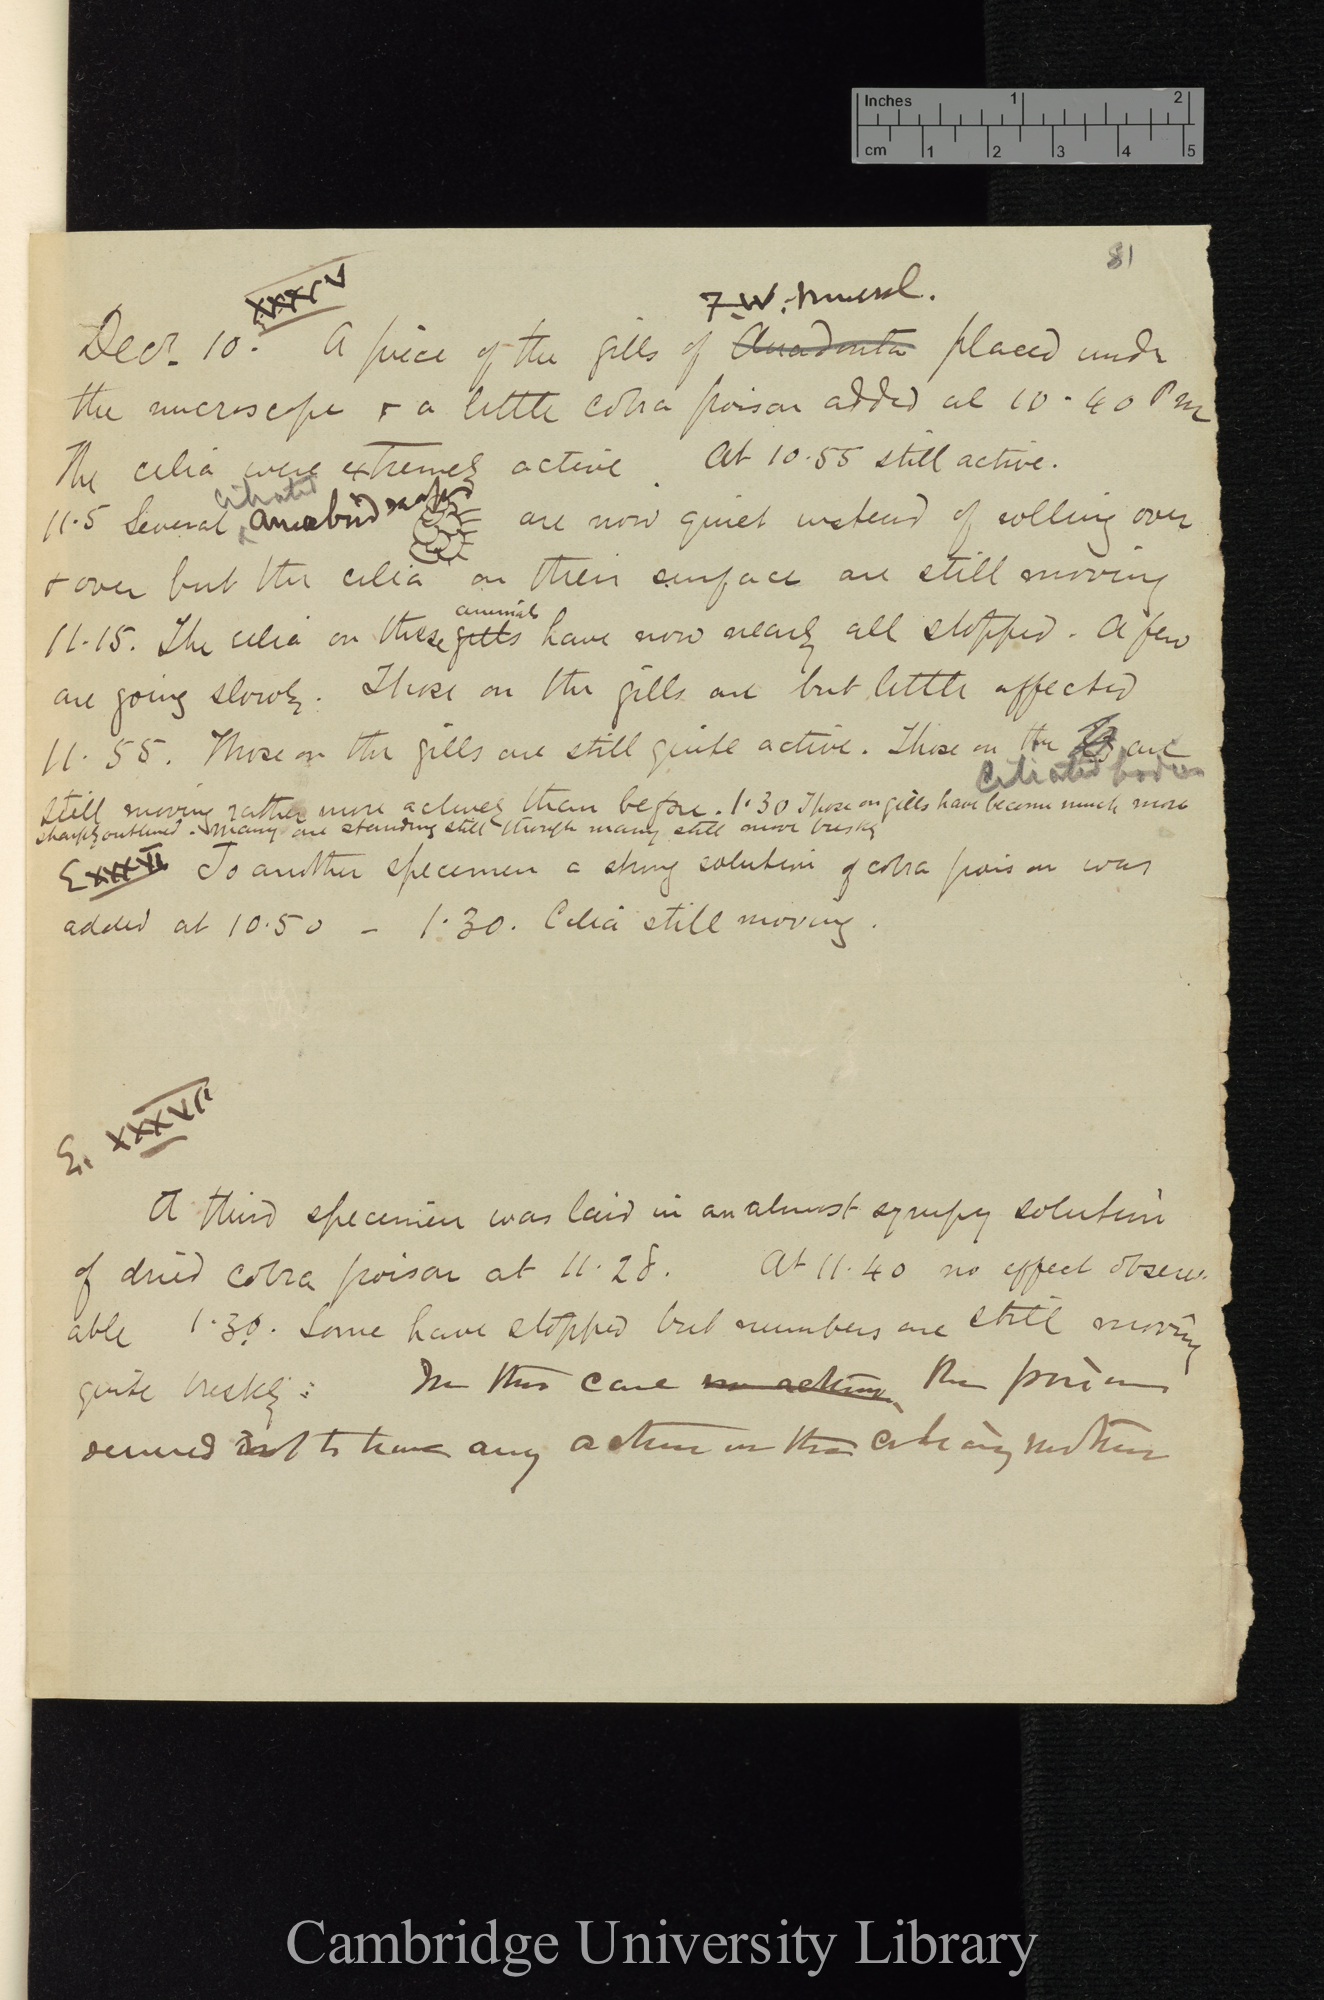 Inches 1 2
cm 1 2 3 4 5
81
XXXV
F.W. Mussel.
Decr. 10. A piece of the gills of Anadonta placed under
the microscope & a little cobra poison added at 10.40 P m
The cilia were extremely active. At 10.55 still active.
ciliated
11.5 Several amoeboid are now quiet instead of rolling over
& over but the cilia on their surface are still moving
animals
11.15. The cilia on these gills have now nearly all stopped. A few
are going slowly. Those on the gills are but little affected
11.55. Those on the gills are still quite active. Those on the are
Ciliated bodies
still moving rather more actively than before. 1.30 Those on gills have become much more
sharply outlined. Many are standing still though many still move briskly
E XXXVI To another specimen a strong solution of cobra poison was
added at 10.50 – 1.30. Cilia still moving.
E. XXXVII
A third specimen was laid in an almost syrupy solution
of dried cobra poison at 11.28. At 11.40 no effect observ-
able 1.30. Some have stopped but numbers are still moving
quite briskly: In this case no action the poison
seemed not to have any action on the ciliary motion
Cambridge University Library